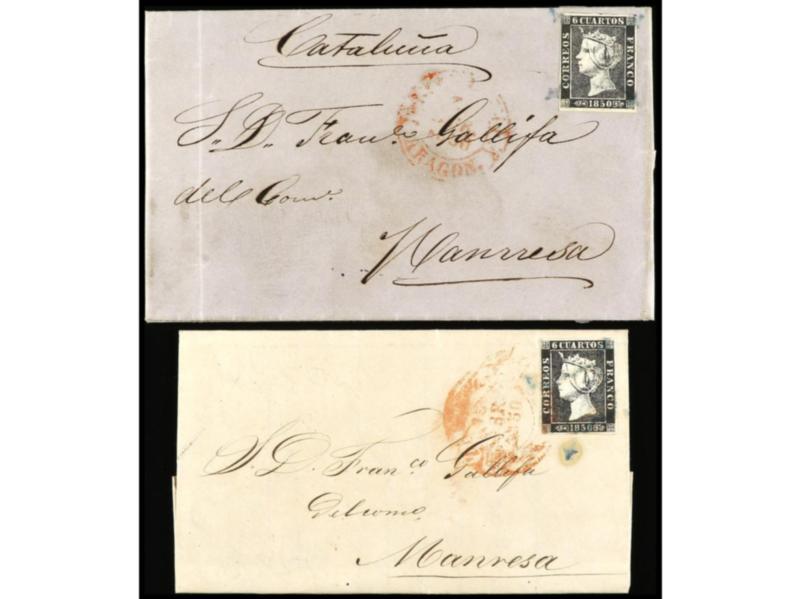 Cataluña
6 CUARTOS
CORREOS
FRANCO
1850
ARAGON.
S. D. Franco. Gallifa
del Com.
Manrresa
6 CUARTOS
CORREOS
FRANCO
1850
S. D. Franco. Gallifa
Delcomo.
Manresa